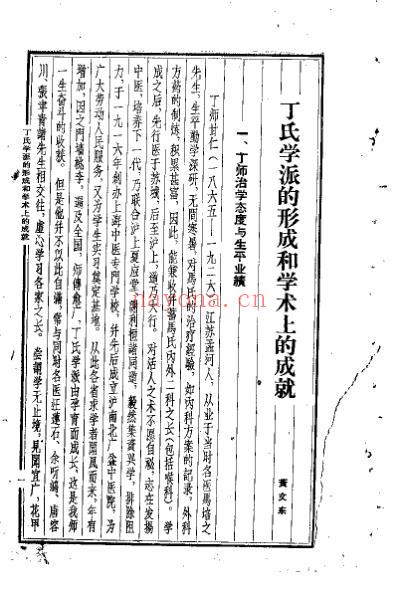 丁氏学派的形成和学术上的成就
黃文东
一、丁师治学态度与生平业績
丁师甘仁(一八六五——一九二六),江苏孟河人,从业于当时名医馬培之
先生,生平勤学深研,无間寒暑,对馬氏的治疗經驗,如內科方案的記录,外科
方药的制炼,积累甚富,因此,能兼收并蓄馬氏內外二科之长(包括喉科)。学
成之后,先行医于苏城,后至沪上,道乃大行。对活人之术不愿自秘,志在发揚
中医,培养下一代,乃联合沪上夏应堂、謝利恒諸同道,毅然集資兴学,排除阻
力,于一九一六年創办上海中医专門学校,并先后成立沪南北广益中医院,为
广大劳动人民服务,又为学生实习奠定基地。从此各省求学者聞風而来,年有
增加,因之門墙桃李,遍及全国,师傳愈广,丁氏学派由孕育而成长,这是我师
一生奋斗的收获。但是他并不以此自滿,常与同时名医汪蓮石、余听鴻、唐容
川、張聿青諸先生相交往,虛心学习各家之长。尝謂学无止境,見聞宜广,花甲
丁氏学派的形成和学术上的成就
一
nayona.cn